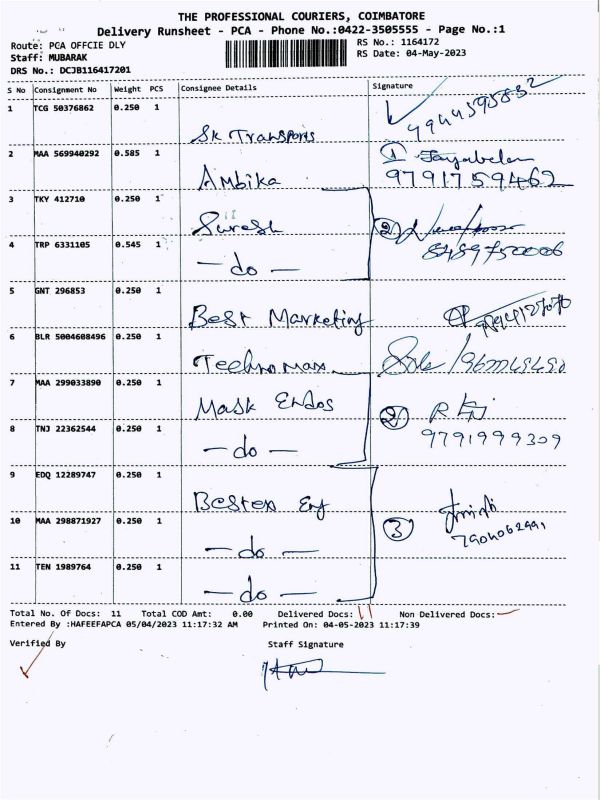 THE PROFESSIONAL COURIERS, COIMBATORE
Delivery Runsheet - PCA - Phone No.:0422-3505555 - Page No.:1
Route: PCA OFFCIE DLY
RS No.: 1164172
Staff: MUBARAK
RS Date: 04-May-2023
DRS No.: DCJB116417201
S No Consignment No Weight PCS Consignee Details Signature
1 TCG 50376862 0.250 1
SK Transports
2 MAA 569940292 0.585 1
Ambika 9791759462
3 TKY 412710 0.250 1
Suresh 2
4 TRP 6331105 0.545 1
— do —
5 GNT 296853 0.250 1
Best Marketing
6 BLR 5004608496 0.250 1
Techno max
7 MAA 299033890 0.250 1
Mask Endos 2
8 TNJ 22362544 0.250 1
— do — 9791999309
9 EDQ 12289747 0.250 1
3
10 MAA 298871927 0.250 1
— do —
11 TEN 1989764 0.250 1
— do —
Total No. Of Docs: 11 Total COD Amt: 0.00 Delivered Docs: 11 Non Delivered Docs: —
Entered By :HAFEEFAPCA 05/04/2023 11:17:32 AM Printed On: 04-05-2023 11:17:39
Verified By Staff Signature